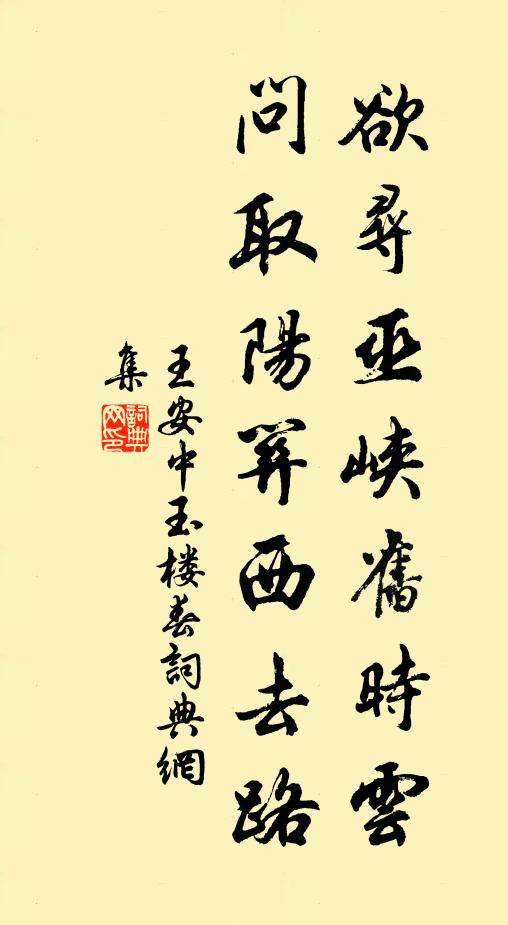 欲尋巫峽舊時雲
問取陽關西去路
王安中玉楼春詞典網
集
詞典
网印